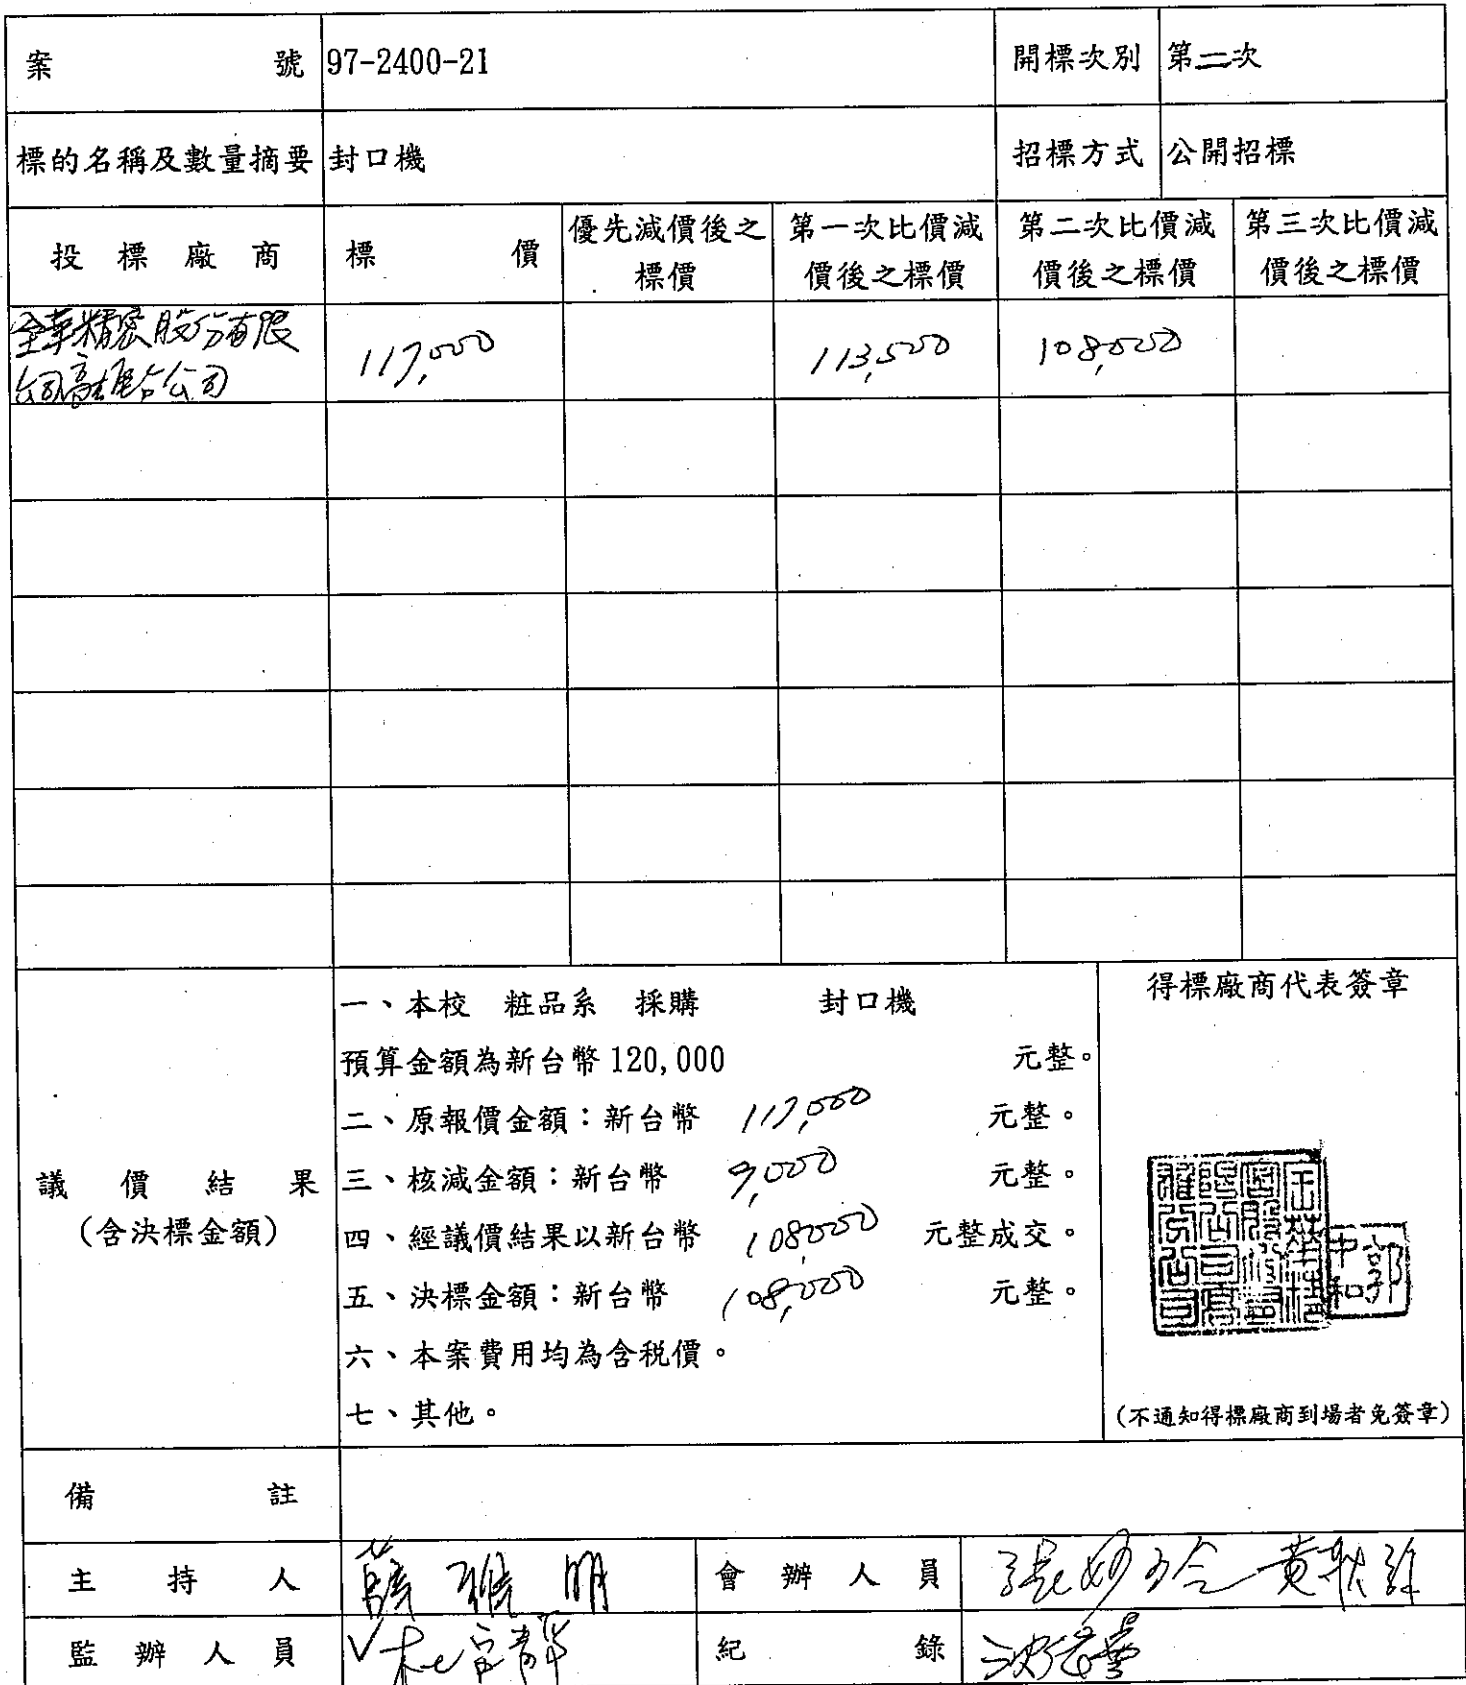 案號 97-2400-21 開標次別 第二次
標的名稱及數量摘要 封口機 招標方式 公開招標
投標廠商 標價 優先減價後之標價 第一次比價減價後之標價 第二次比價減價後之標價 第三次比價減價後之標價
全華精密股份有限 117,000 113,500 108,000
公司高雄分公司
一、本校 粧品系 採購 封口機
得標廠商代表簽章
預算金額為新台幣120,000 元整。
二、原報價金額：新台幣 117,000 元整。
議價結果
三、核減金額：新台幣 9,000 元整。
(含決標金額)
四、經議價結果以新台幣 108,000 元整成交。
郭中和
五、決標金額：新台幣 108,000 元整。
六、本案費用均為含稅價。
七、其他。
(不通知得標廠商到場者免簽章)
備註
主持人 會辦人員
監辦人員 紀錄